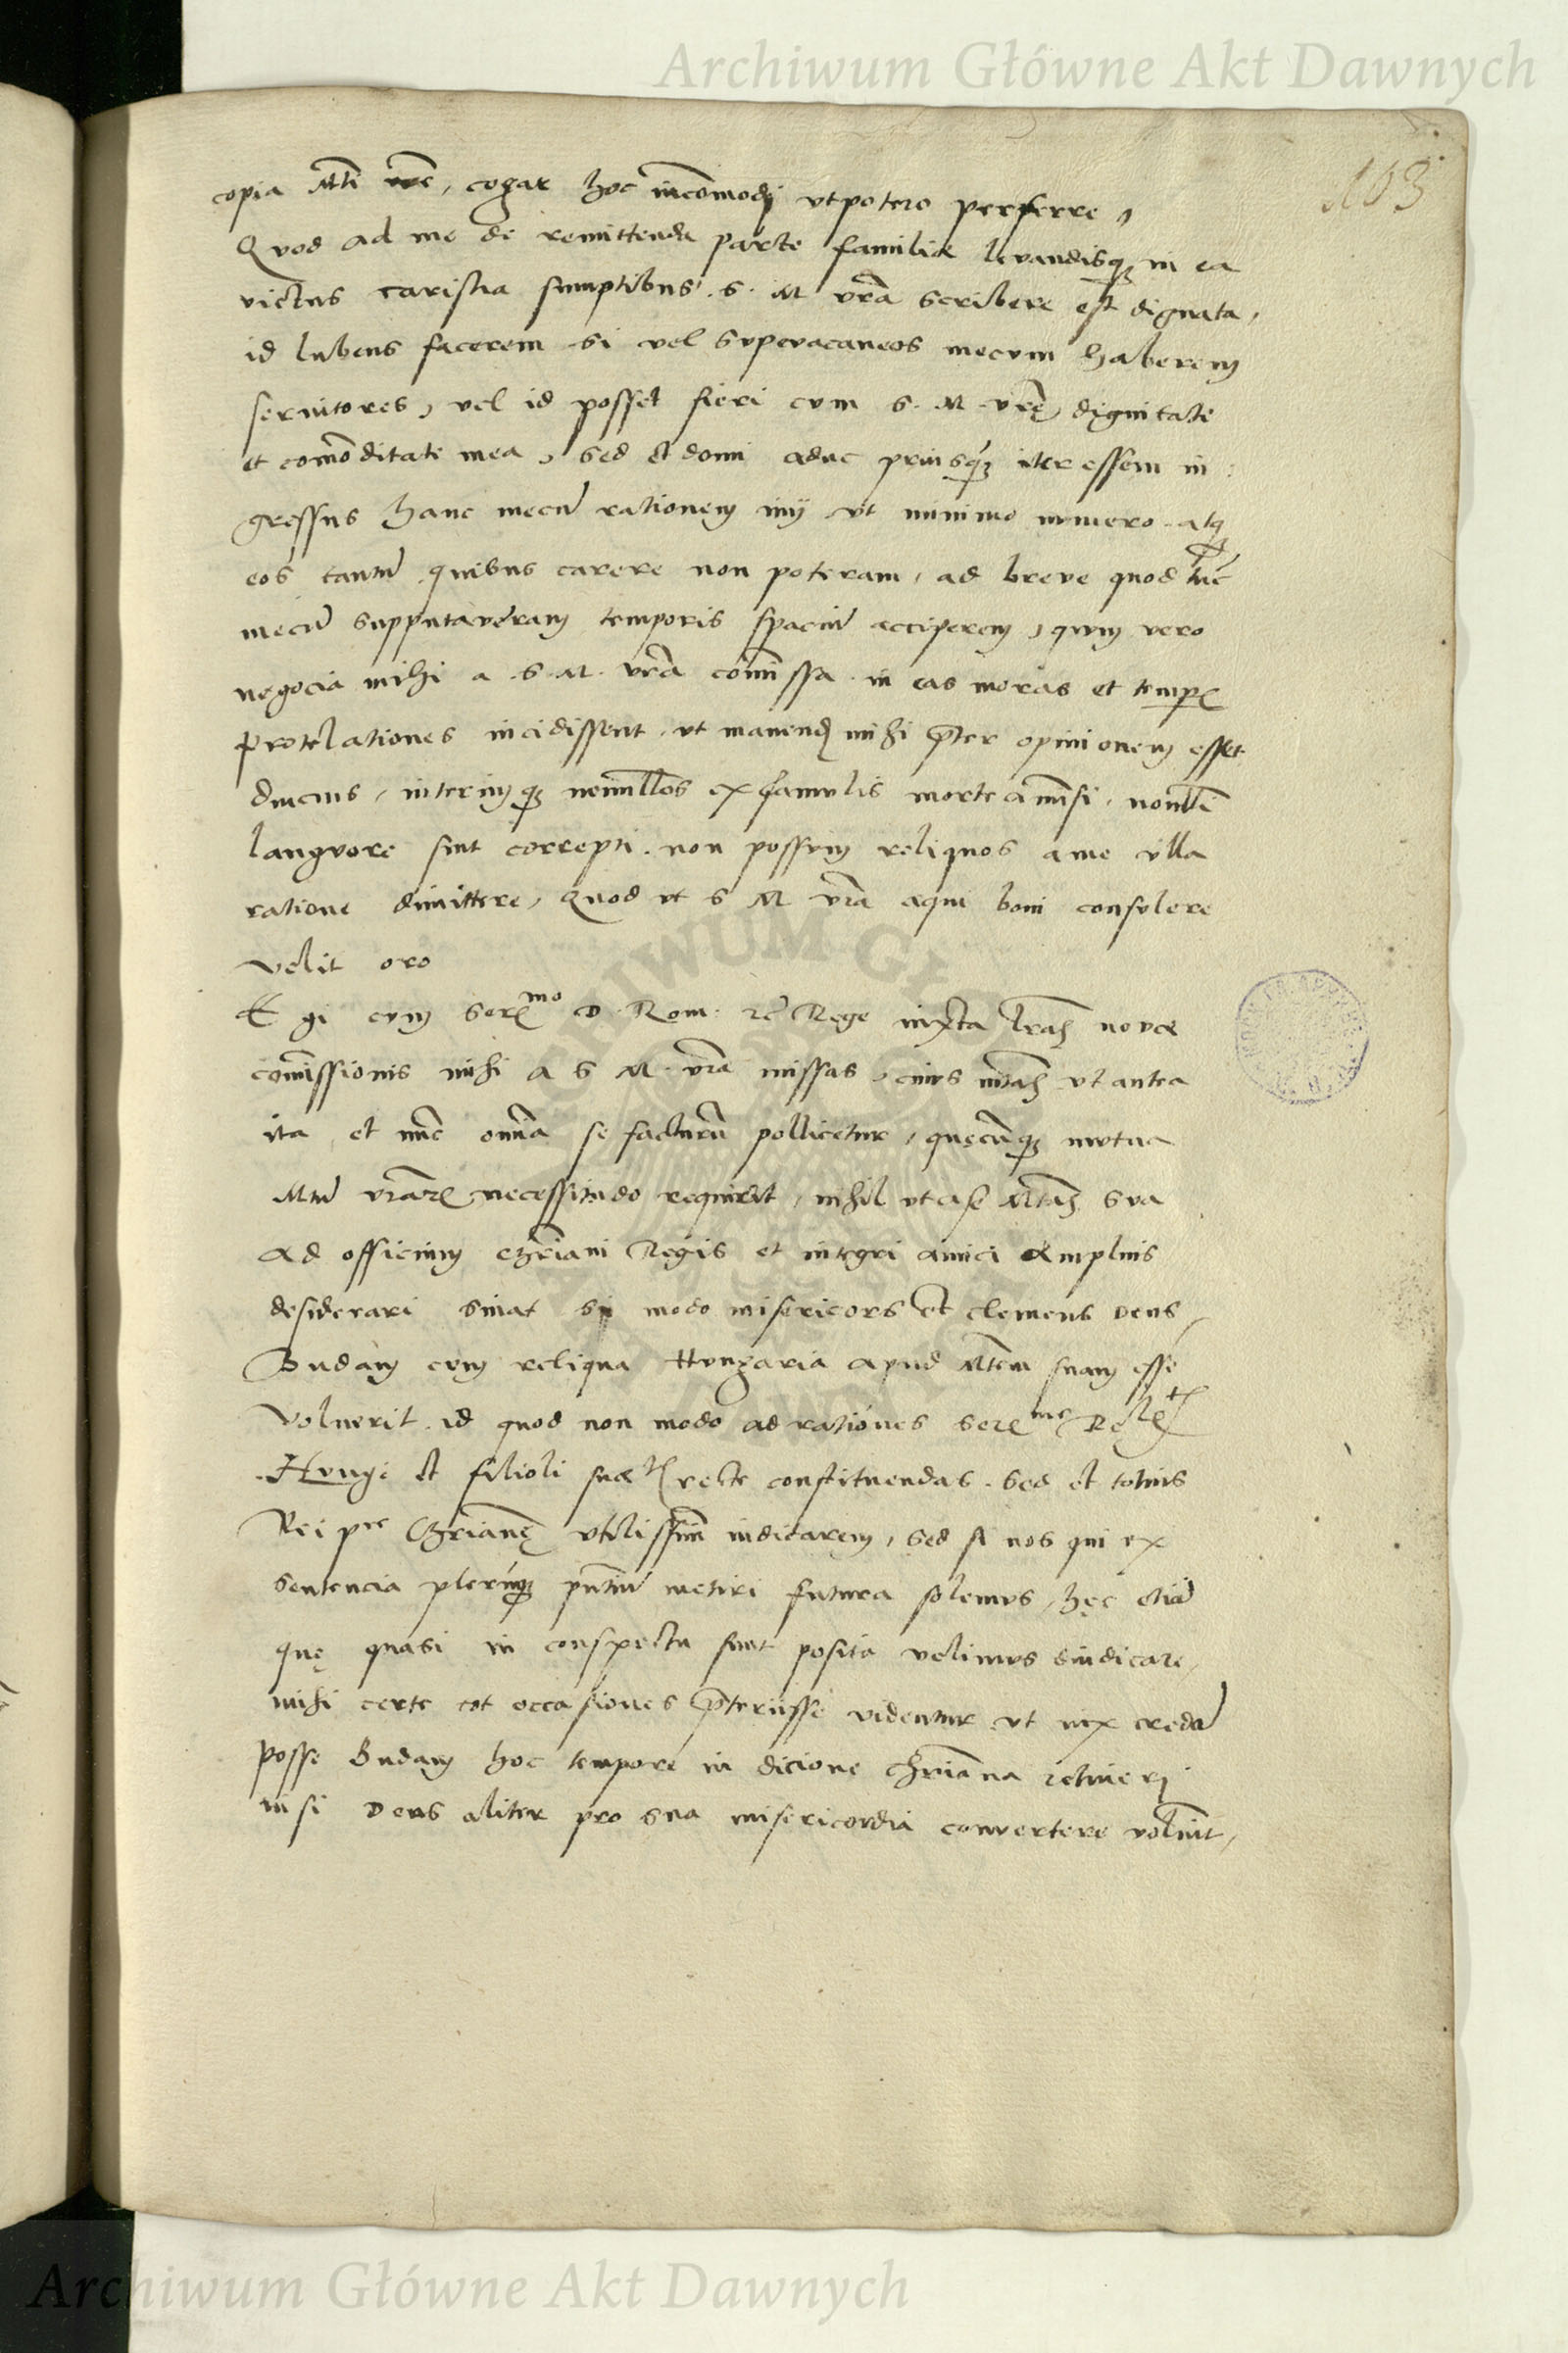 Archiwum Główne Akt Dawnych
103
copia Mti vre, cogar hoc incomodi vt potero perferre,
Quod ad me de remittenda parte familiæ levandisq; in ea
victus caristia sumptibus S. M. vra scribere est dignata,
id lubens facerem si vel supervacaneos mecum haberem
servitores, vel id posset fieri cum S. M. vrę dignitate
et comoditate mea, sed et domi aduc priusq; iter essem in
gressus hanc mecu rationem inij vt minimo numero atq;
eos tantu quibus carere non poteram, ad breve quod tuc
mecu supputaveram temporis spaciu acciperem, qum vero
negocia mihi a S. M. vra comissa in eas moras et temp
protelationes incidissent, vt manend mihi pter opinionem esset
diucius, interimq; nonnullos ex famulis morte amisi, nonulli
languore sint correpti non possum reliquos a me ulla
ratione dimittere, Quod vt S M vra aequi boni consulere
velit oro
Egi cum Sermo D. Rom: Rege iuxta lras novæ
comissionis mihi a S M. vra missas, cuius mtas vt antea
ita et nuc omnia se facturu pollicetur, quęcuq; mutua
Mtu vrar necessitudo requirit, nihil vt ase Mtas sua
ad officium chriani Regis et integri amici amplius
desiderari sinat si modo misericors et clemens Deus,
Budam cum reliqua Hungaria apud Mtem suam esse
voluerit id quod non modo ad rationes Serme Re
Hungę et filioli sue recte constituendas. sed et totius
Rei pce Chrianę vtilissimu iudicarem, sed si nos qui ex
sentencia plerunq; pntiu metiri futura solemus, hęc etia
quę quasi in conspectu sunt posita velimus diiudicare,
mihi certe tot occasiones pteriisse videntur vt vix creda
posse Budam hoc tempore in dicione chriana retineri
nisi Deus aliter pro sua misericordia convertere voluit,
Archiwum Główne Akt Dawnych